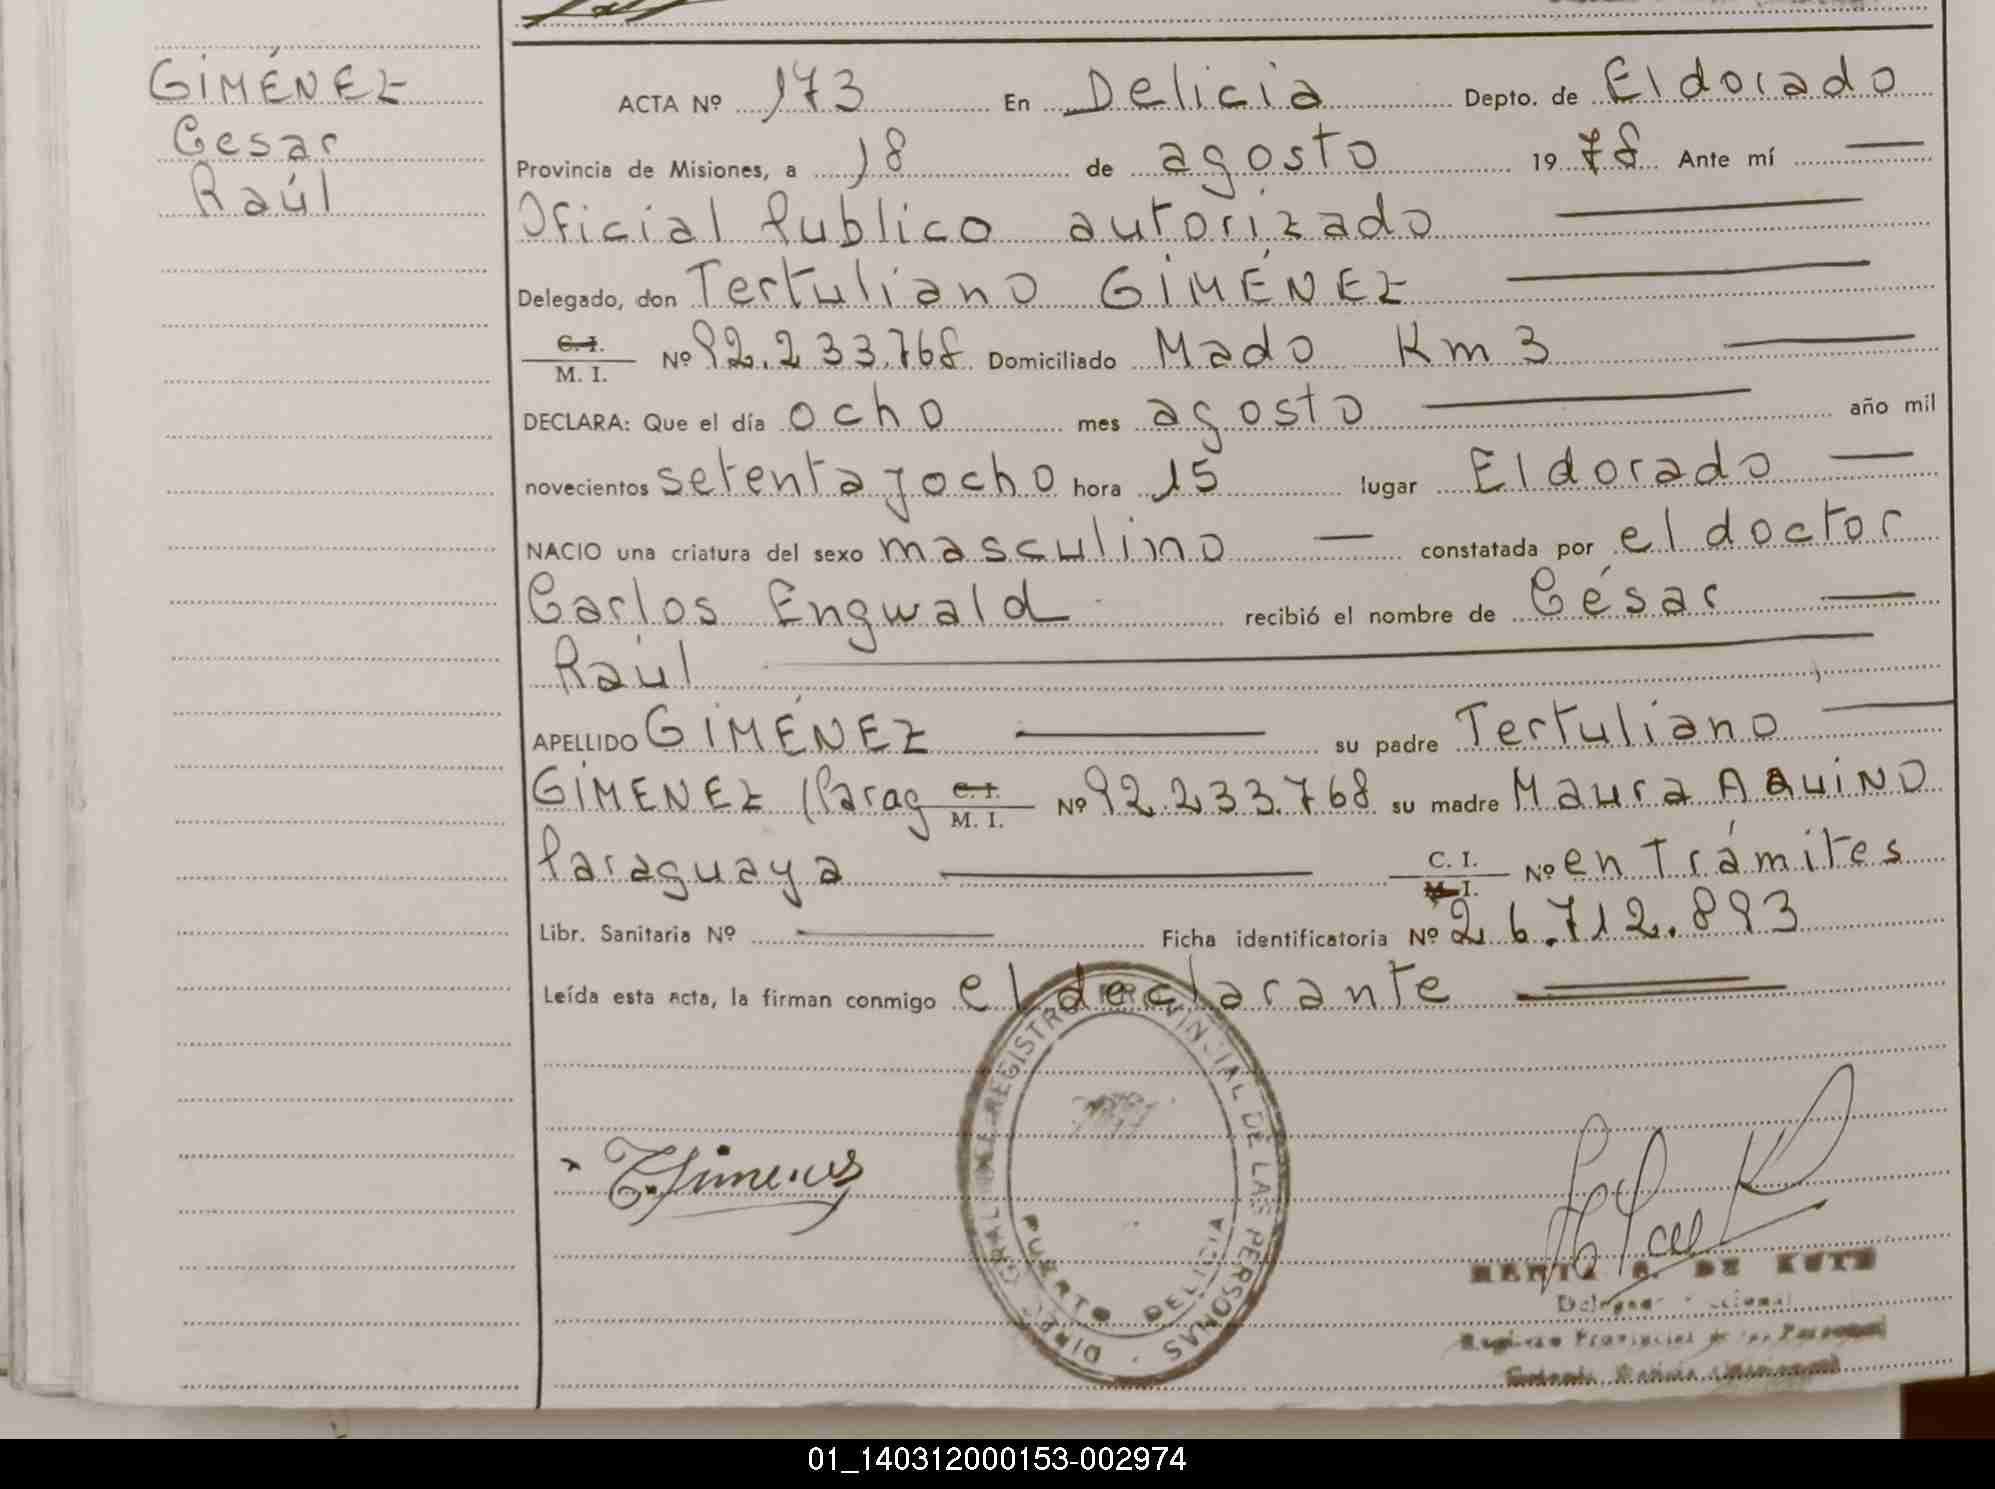 GIMÉNEZ
Cesar
Raúl
ACTA Nº 173 En Delicia Depto. de Eldorado
Provincia de Misiones, a 18 de agosto 1978 Ante mí
Oficial Publico autorizado
Delegado, don Tertuliano GIMÉNEZ
C. I.
M. I. Nº 92.233.768 Domiciliado Mado Km 3
DECLARA: Que el día ocho mes agosto año mil
novecientos setenta y ocho hora 15 lugar Eldorado
NACIO una criatura del sexo masculino constatada por el doctor
Carlos Engwald recibió el nombre de César
Raúl
APELLIDO GIMÉNEZ su padre Tertuliano
GIMENEZ (Parag C. I. M. I. Nº 92.233.768 su madre Maura AQUINO
Paraguaya C. I. M. I. Nº en Trámites
Libr. Sanitaria Nº Ficha identificatoria Nº 26.712.893
Leída esta acta, la firman conmigo el declarante
T. Gimenes
DIREC. GRAL. DEL REGISTRO PROVINCIAL DE LAS PERSONAS
PUERTO DELICIA
DE
Registro Provincial de las Personas
01_140312000153-002974